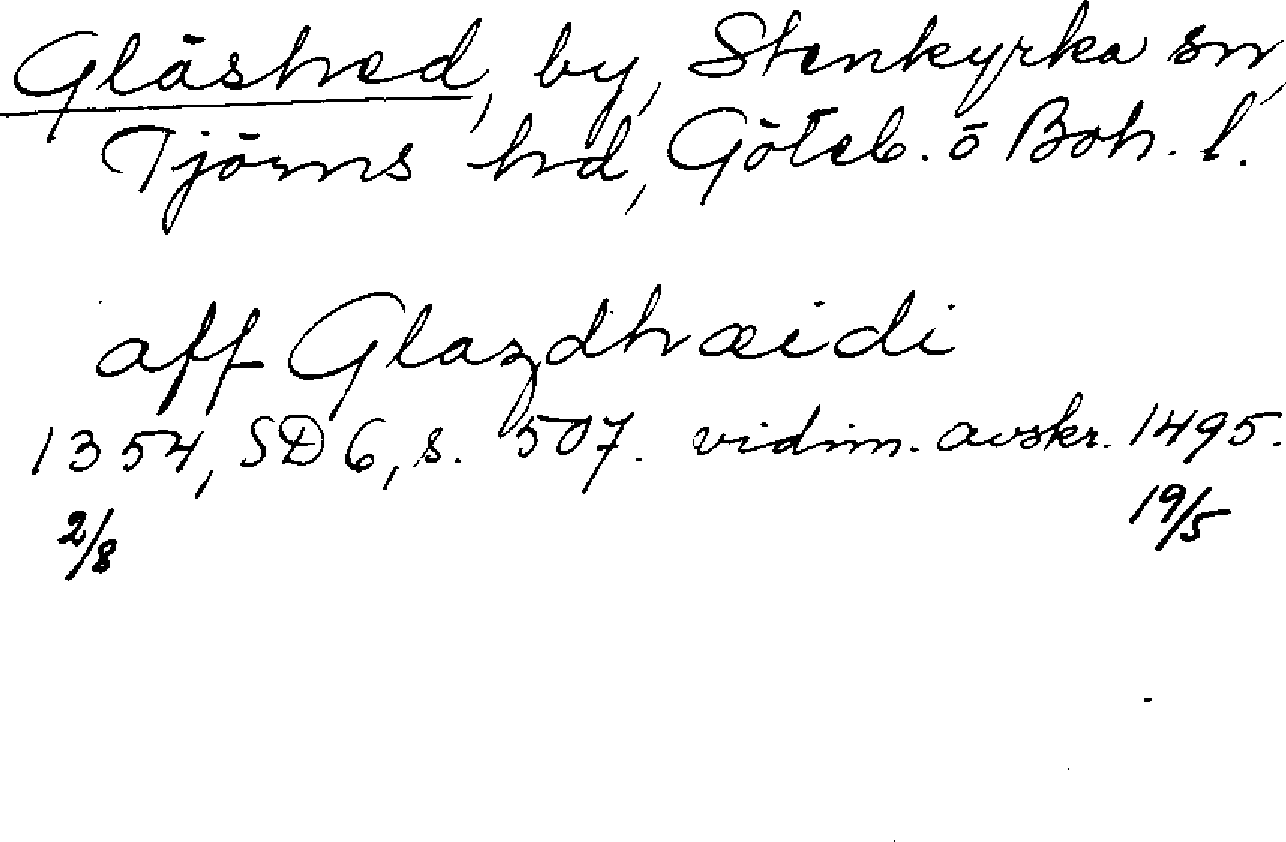 Gläshed, by, Stenkyrka sn,
Tjörns hd, Göteb. o Boh. l.
aff Glazdhæidi
1354, SD 6, s. 507. vidim. avskr. 1495.
2/8 19/5